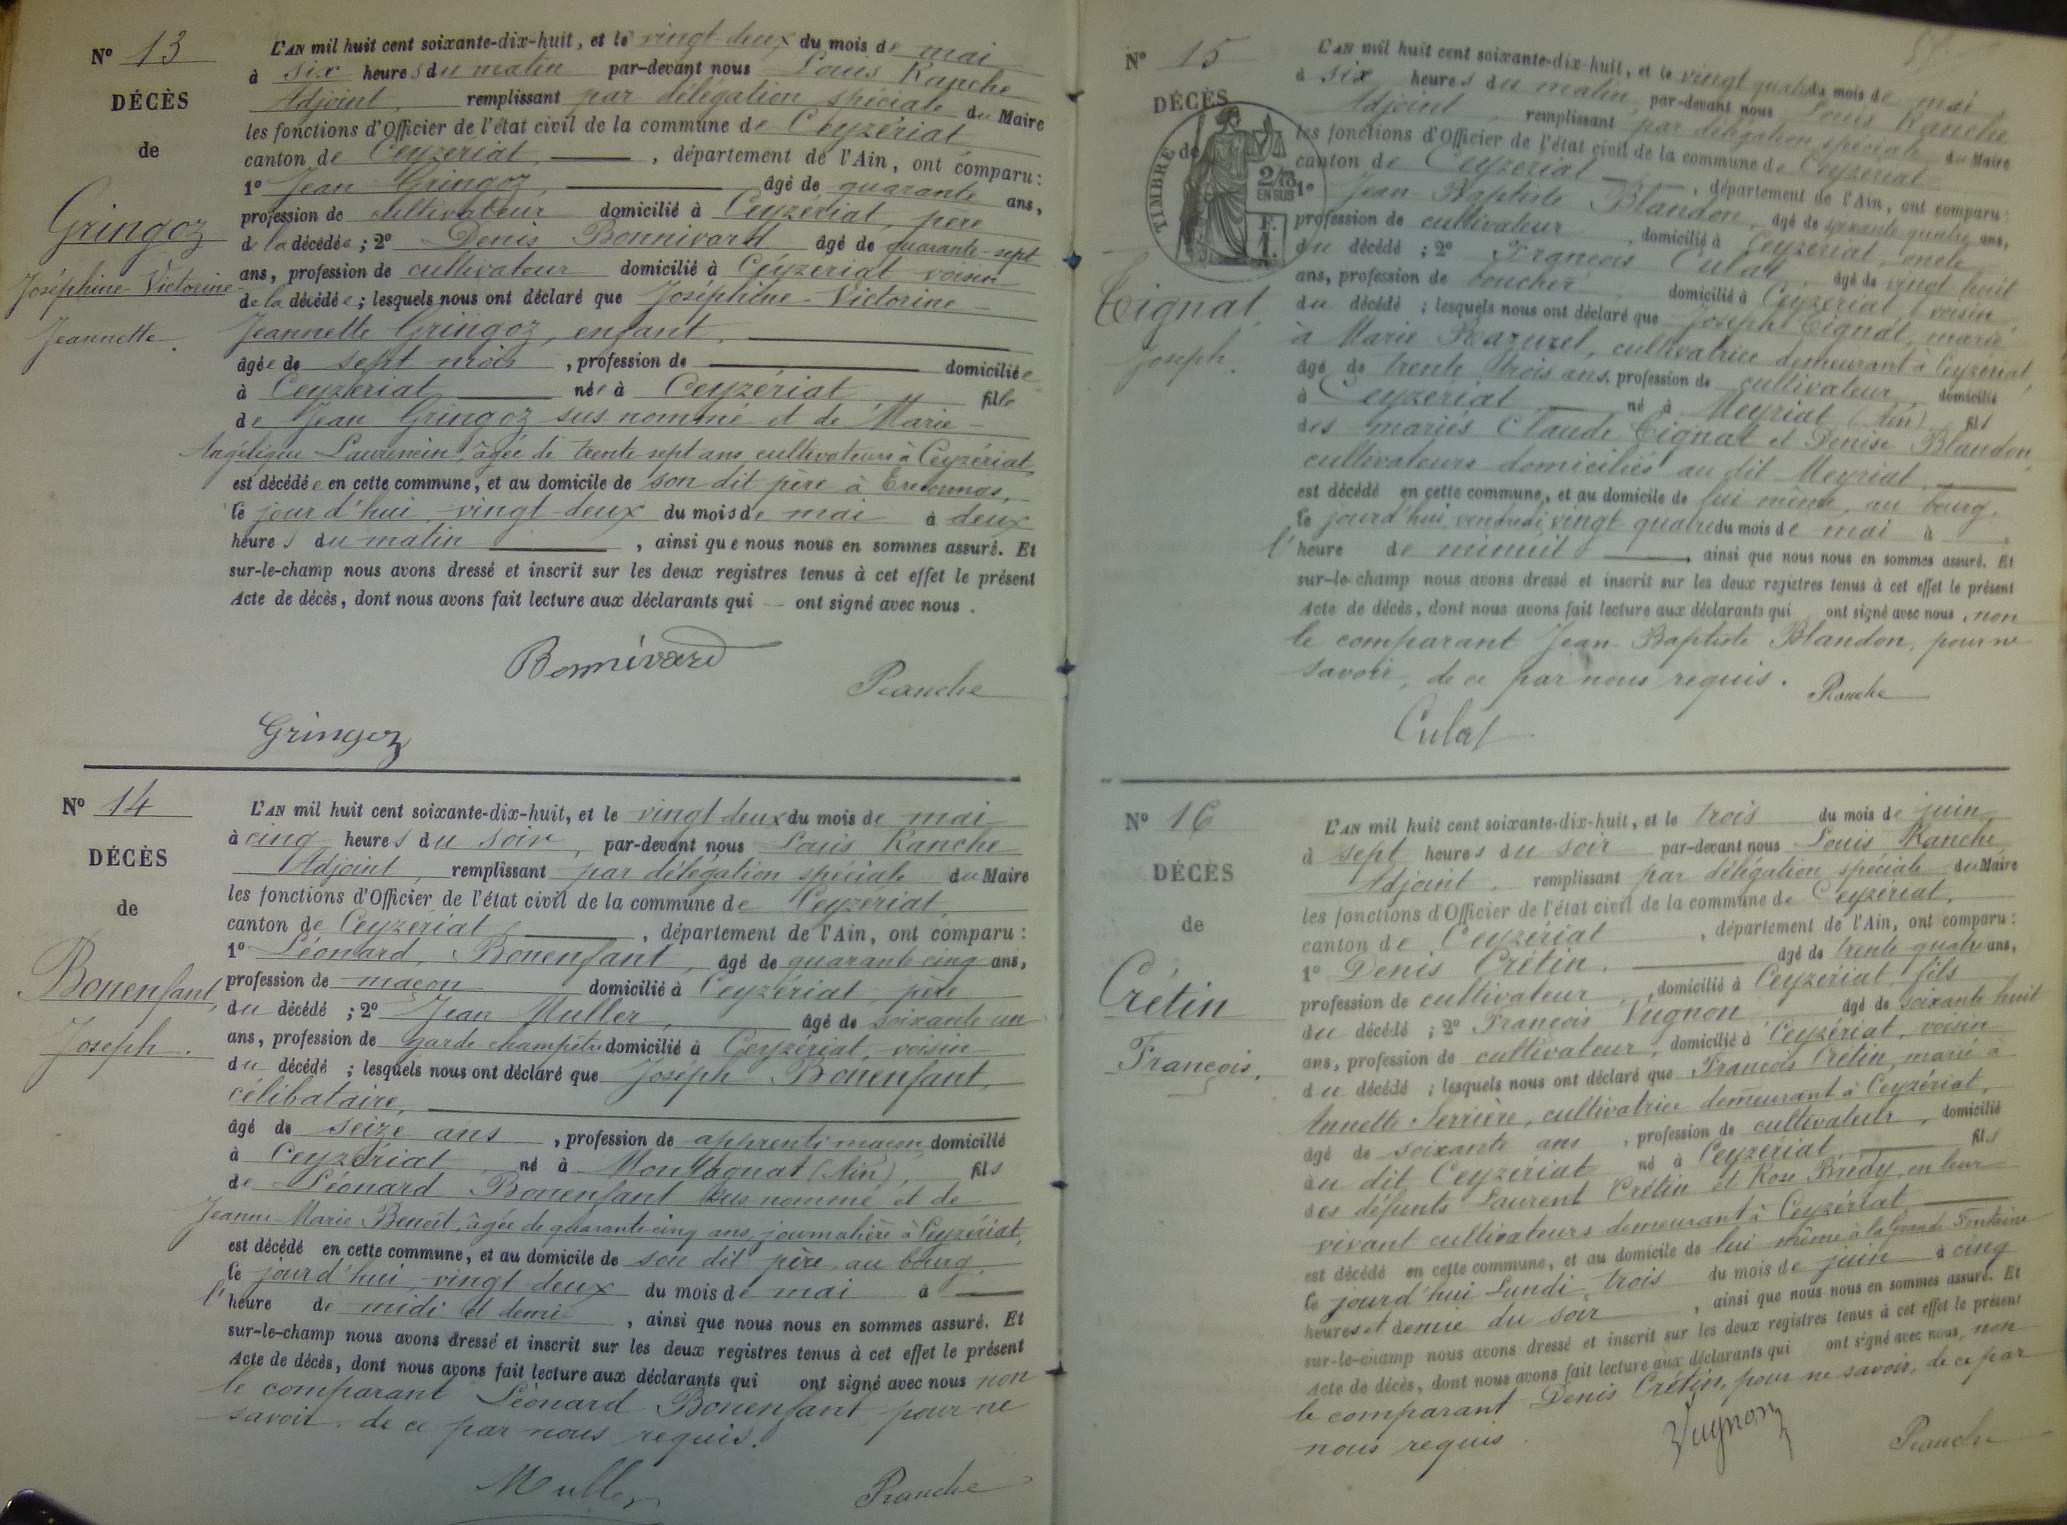 N° 13
DÉCÈS
de
Gringoz
Joséphine-Victorine-
Jeannette.
L'AN mil huit cent soixante-dix-huit, et le vingt deux du mois de mai
à six heures du matin par-devant nous Louis Ranche
Adjoint, remplissant par délégation spéciale du Maire
les fonctions d'Officier de l'état civil de la commune de Ceyzériat
canton de Ceyzériat, département de l'Ain, ont comparu :
1° Jean Gringoz, âgé de quarante ans,
profession de cultivateur domicilié à Ceyzériat, père
de la décédée ; 2° Denis Bonnivard âgé de quarante-sept
ans, profession de cultivateur domicilié à Ceyzériat voisin
de la décédée ; lesquels nous ont déclaré que Joséphine-Victorine-
Jeannette Gringoz, enfant,
âgée de sept mois, profession de domiciliée
à Ceyzériat née à Ceyzériat fille
de Jean Gringoz sus-nommé et de Marie-
Angélique Laurencin, âgée de trente sept ans, cultivateurs à Ceyzériat,
est décédée en cette commune, et au domicile de son dit père à
le jourd'hui vingt deux du mois de mai à deux
heures du matin, ainsi que nous nous en sommes assuré. Et
sur-le-champ nous avons dressé et inscrit sur les deux registres tenus à cet effet le présent
Acte de décès, dont nous avons fait lecture aux déclarants qui ont signé avec nous.
Bonnivard
Ranche
Gringoz
N° 14
DÉCÈS
de
Bonenfant,
Joseph.
L'AN mil huit cent soixante-dix-huit, et le vingt deux du mois de mai
à cinq heures du soir, par-devant nous Louis Ranche
Adjoint, remplissant par délégation spéciale du Maire
les fonctions d'Officier de l'état civil de la commune de Ceyzériat,
canton de Ceyzériat, département de l'Ain, ont comparu :
1° Léonard Bonenfant, âgé de quarante cinq ans,
profession de maçon domicilié à Ceyzériat, père
du décédé ; 2° Jean Muller, âgé de soixante un
ans, profession de garde-champêtre domicilié à Ceyzériat, voisin
du décédé ; lesquels nous ont déclaré que Joseph Bonenfant,
célibataire,
âgé de seize ans, profession de apprenti maçon, domicilié
à Ceyzériat né à Montagnat (Ain), fils
de Léonard Bonenfant sus nommé et de
Jeanne-Marie Benoît, âgée de quarante-cinq ans, journalière à Ceyzériat,
est décédé en cette commune, et au domicile de son dit père, au bourg,
le jourd'hui vingt deux du mois de mai à
l'heure de midi et demie, ainsi que nous nous en sommes assuré. Et
sur-le-champ nous avons dressé et inscrit sur les deux registres tenus à cet effet le présent
Acte de décès, dont nous avons fait lecture aux déclarants qui ont signé avec nous non
le comparant Léonard Bonenfant pour ne
savoir, de ce par nous requis.
Muller
Ranche
N° 15
DÉCÈS
de
TIMBRE
2/10
EN SUS
Tignat,
Joseph.
L'AN mil huit cent soixante-dix-huit, et le vingt quatre du mois de mai
à six heures du matin, par-devant nous Louis Ranche
Adjoint, remplissant par délégation spéciale du Maire
les fonctions d'Officier de l'état civil de la commune de Ceyzériat
canton de Ceyzériat, département de l'Ain, ont comparu :
1° Jean-Baptiste Blandon, âgé de soixante quatre ans,
profession de cultivateur, domicilié à Ceyzériat, oncle
du décédé ; 2° François Culat, âgé de vingt huit
ans, profession de boucher domicilié à Ceyzériat, voisin
du décédé ; lesquels nous ont déclaré que Joseph Tignat, marié
à Marie, cultivatrice demeurant à Ceyzériat,
âgé de trente trois ans, profession de cultivateur, domicilié
à Ceyzériat né à Meyriat (Ain) fils
des mariés Claude Tignat et Denise Blandon,
cultivateurs domiciliés au dit Meyriat,
est décédé en cette commune, et au domicile de lui même, au bourg,
le jourd'hui vendredi vingt quatre du mois de mai à
l'heure de minuit, ainsi que nous nous en sommes assuré. Et
sur-le-champ nous avons dressé et inscrit sur les deux registres tenus à cet effet le présent
Acte de décès, dont nous avons fait lecture aux déclarants qui ont signé avec nous, non
le comparant Jean-Baptiste Blandon, pour ne
savoir, de ce par nous requis.
Ranche
Culat
N° 16
DÉCÈS
de
Crétin
François.
L'AN mil huit cent soixante-dix-huit, et le trois du mois de juin
à sept heures du soir par-devant nous Louis Ranche,
Adjoint, remplissant par délégation spéciale du Maire
les fonctions d'Officier de l'état civil de la commune de Ceyzériat,
canton de Ceyzériat, département de l'Ain, ont comparu :
1° Denis Crétin, âgé de trente quatre ans,
profession de cultivateur, domicilié à Ceyzériat, fils
du décédé ; 2° François Vugnon âgé de soixante huit
ans, profession de cultivateur, domicilié à Ceyzériat, voisin
du décédé ; lesquels nous ont déclaré que François Crétin, marié à
Annette Serrière, cultivatrice demeurant à Ceyzériat,
âgé de soixante ans, profession de cultivateur, domicilié
au dit Ceyzériat né à Ceyzériat fils
des défunts Laurent Crétin et Rose Brédy, en leur
vivant cultivateurs demeurant à Ceyzériat
est décédé en cette commune, et au domicile de lui même à la Grande Fontaine
le jourd'hui Lundi, trois du mois de juin à cinq
heures et demie du soir, ainsi que nous nous en sommes assuré. Et
sur-le-champ nous avons dressé et inscrit sur les deux registres tenus à cet effet le présent
Acte de décès, dont nous avons fait lecture aux déclarants qui ont signé avec nous, non
le comparant Denis Crétin, pour ne savoir, de ce par
nous requis.
Vugnon
Ranche